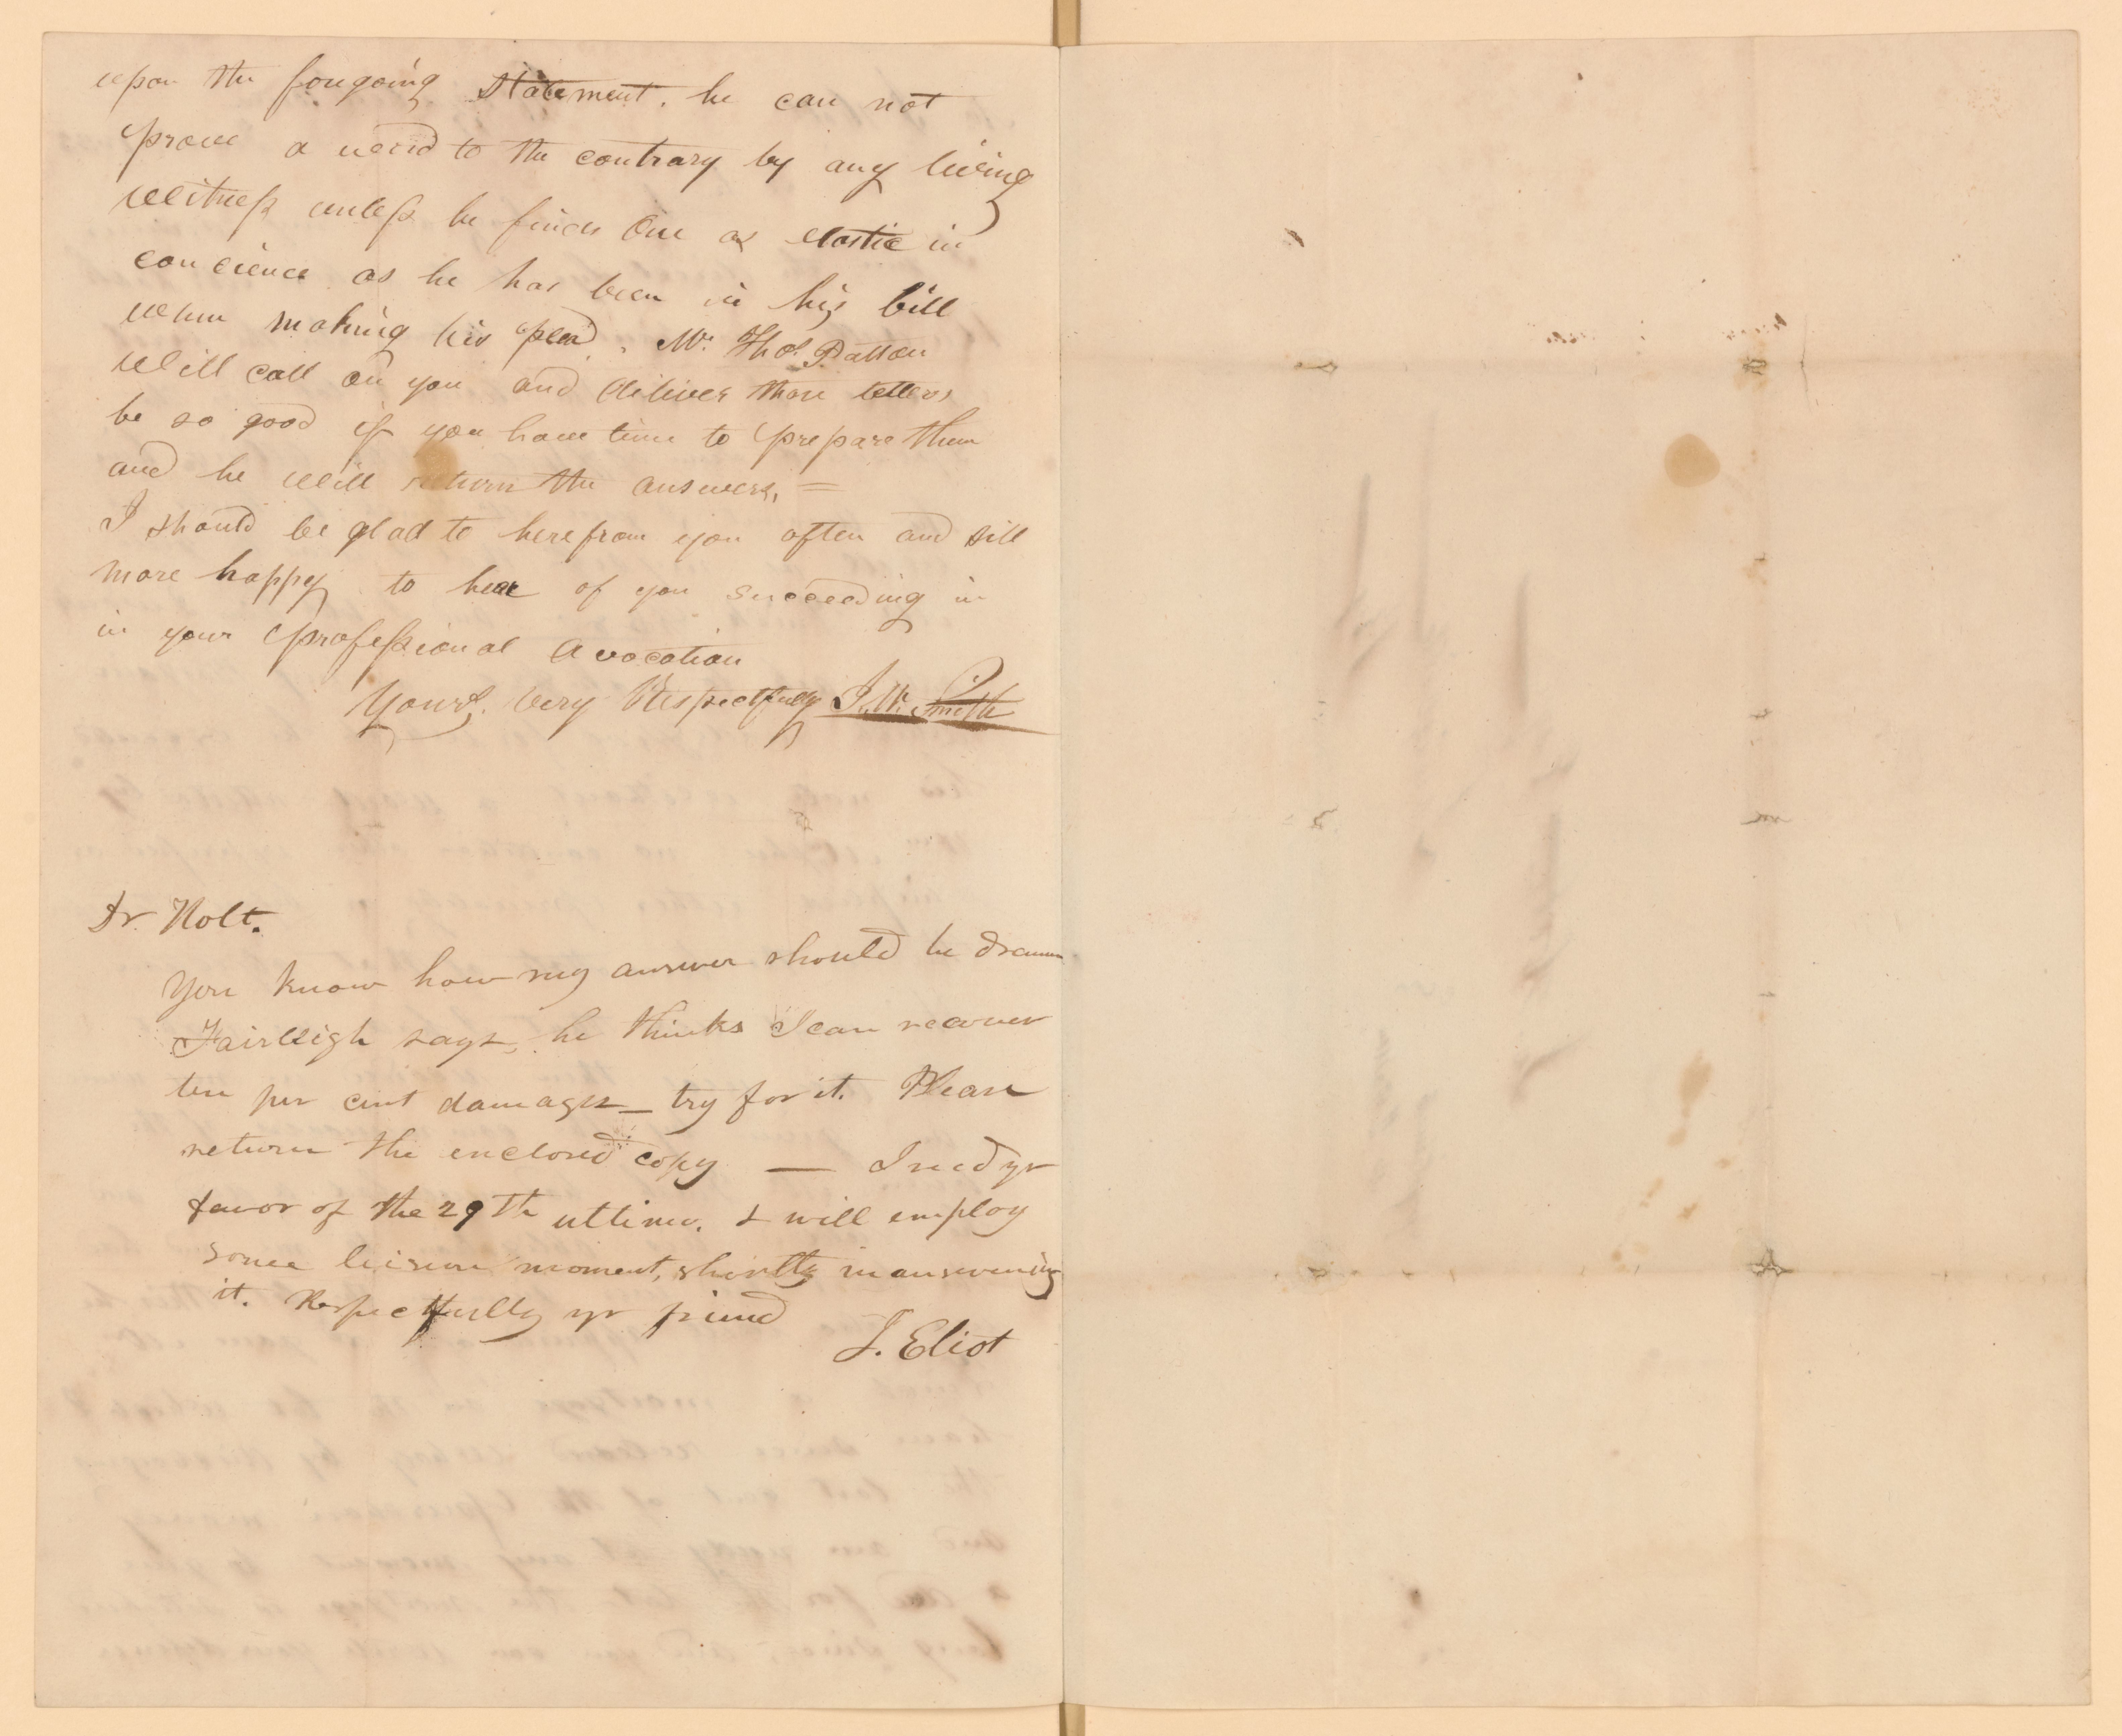 upon the forgoing statement. he can not
prove a word to the contrary by any living
witness unless he finds One as elastic in
concience as he has been in his bill
when making his plead. Mr. Thos. Patton
Will call on you and deliver these letters
be so good if you have time to prepare them
and he will return the answers, =
I should be glad to here from you often and still
more happy to hear of you succeeding in
in your professional avocation
Yours. Very Respectfully J. W. Smith
Dr Holt.
You know how my answer should be drawn
Fairleigh says, he thinks I can recover
ten per cent damages — try for it. Please
return the enclosed copy — I recd yr
favor of the 29th ultimo. & will employ
some leisure moment, shortly in answering
it. Respectfully yr friend
J. Eliot